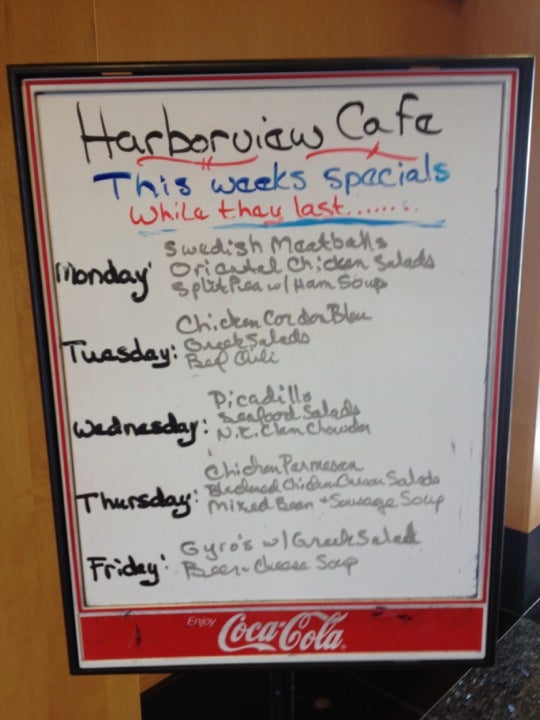 Harborview Cafe
This weeks specials
While they last.......
Monday:
Swedish Meatballs
Oriental Chicken Salads
Split Pea w/ Ham Soup
Tuesday:
Chicken Cordon Bleu
Greek Salads
Beef Chili
Wednesday:
Picadillo
Seafood Salads
N.E. Clam Chowder
Thursday:
Chicken Parmesan
Blackened Chicken Caesar Salads
Mixed Bean + Sausage Soup
Friday:
Gyro's w/ Greek Salad
Beer-Cheese Soup
Enjoy
Coca-Cola